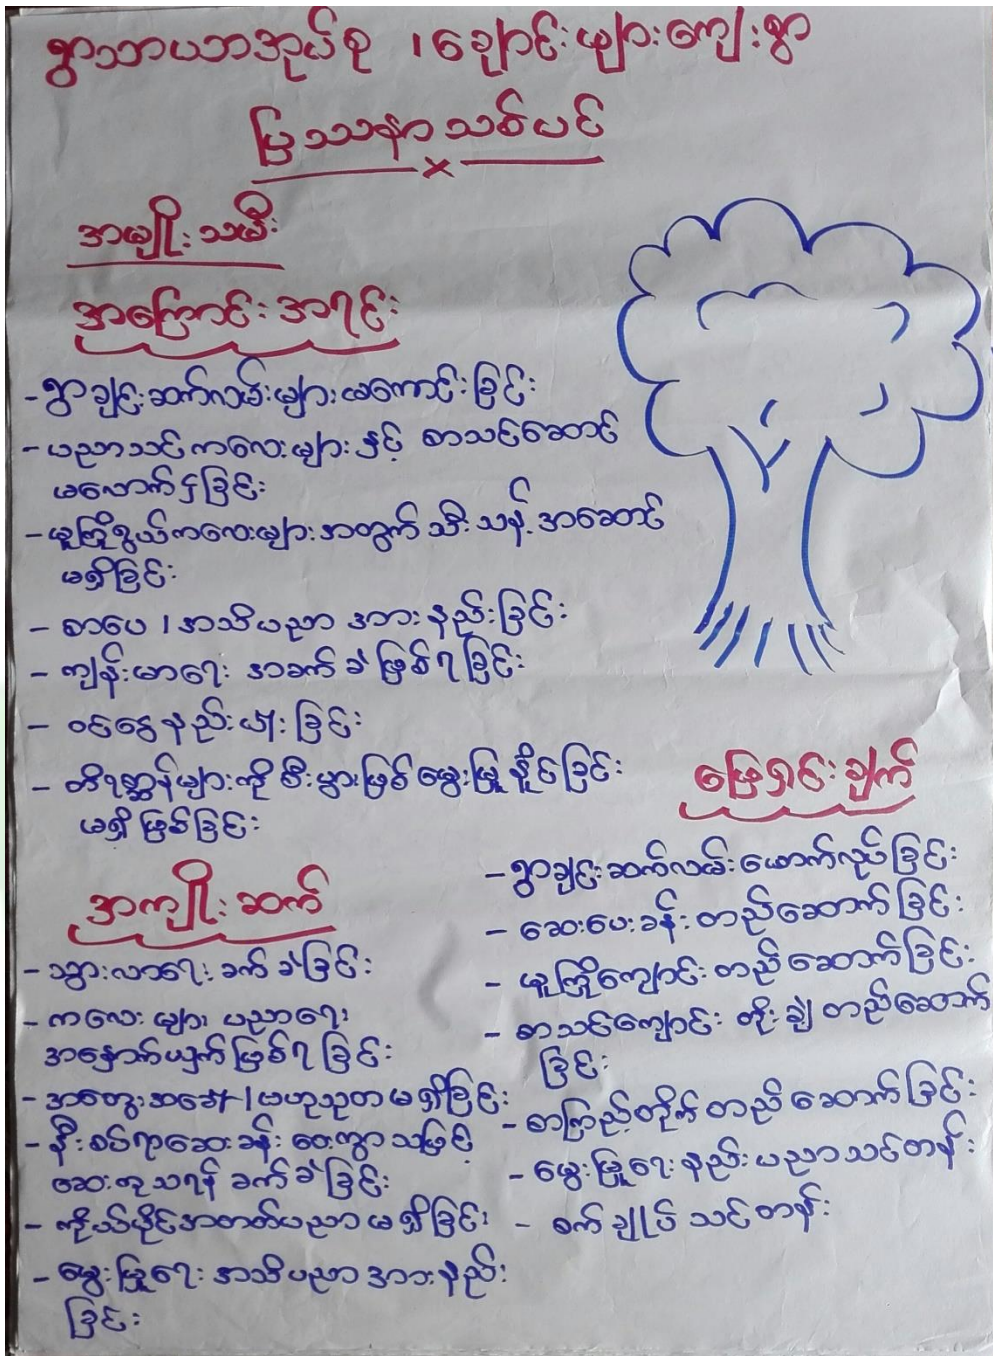 ရွာသာယာအုပ်စု ၊ ချောင်းဖျားကျေးရွာ
ပြဿနာသစ်ပင်
အမျိုးသမီး
အကြောင်းအရင်း
- ရွာချင်းဆက်လမ်းများမကောင်းခြင်း
- ပညာသင်ကလေးများနှင့် စာသင်ဆောင်
မလောက်ငှခြင်း
- မူကြိုရွယ်ကလေးများအတွက် သီးသန့်အဆောင်
မရှိခြင်း
- စာပေ ၊ အသိပညာ အားနည်းခြင်း
- ကျန်းမာရေး အခက်ခဲဖြစ်ရခြင်း
- ဝင်ငွေနည်းပါးခြင်း
- တိရစ္ဆာန်များကို စီးပွားဖြစ်မွေးမြူနိုင်ခြင်း
မရှိဖြစ်ခြင်း
အကျိုးဆက်
- သွားလာရေးခက်ခဲခြင်း
- ကလေးများ ပညာရေး
အနှောက်ယှက်ဖြစ်ရခြင်း
- အတွေးအခေါ် ၊ ဗဟုသုတမရှိခြင်း
- နီးစပ်ရာဆေးခန်း ဝေးကွာသဖြင့်
ဆေးကုသရန် ခက်ခဲခြင်း
- ကိုယ်ပိုင်အတတ်ပညာမရှိခြင်း
- မွေးမြူရေး အသိပညာအားနည်း
ခြင်း
ဖြေရှင်းချက်
- ရွာချင်းဆက်လမ်းဖောက်လုပ်ခြင်း
- ဆေးပေးခန်းတည်ဆောက်ခြင်း
- မူကြိုကျောင်းတည်ဆောက်ခြင်း
- စာသင်ကျောင်း တိုးချဲ့တည်ဆောက်
ခြင်း
- စာကြည့်တိုက်တည်ဆောက်ခြင်း
- မွေးမြူရေးနည်းပညာသင်တန်း
- စက်ချုပ်သင်တန်း